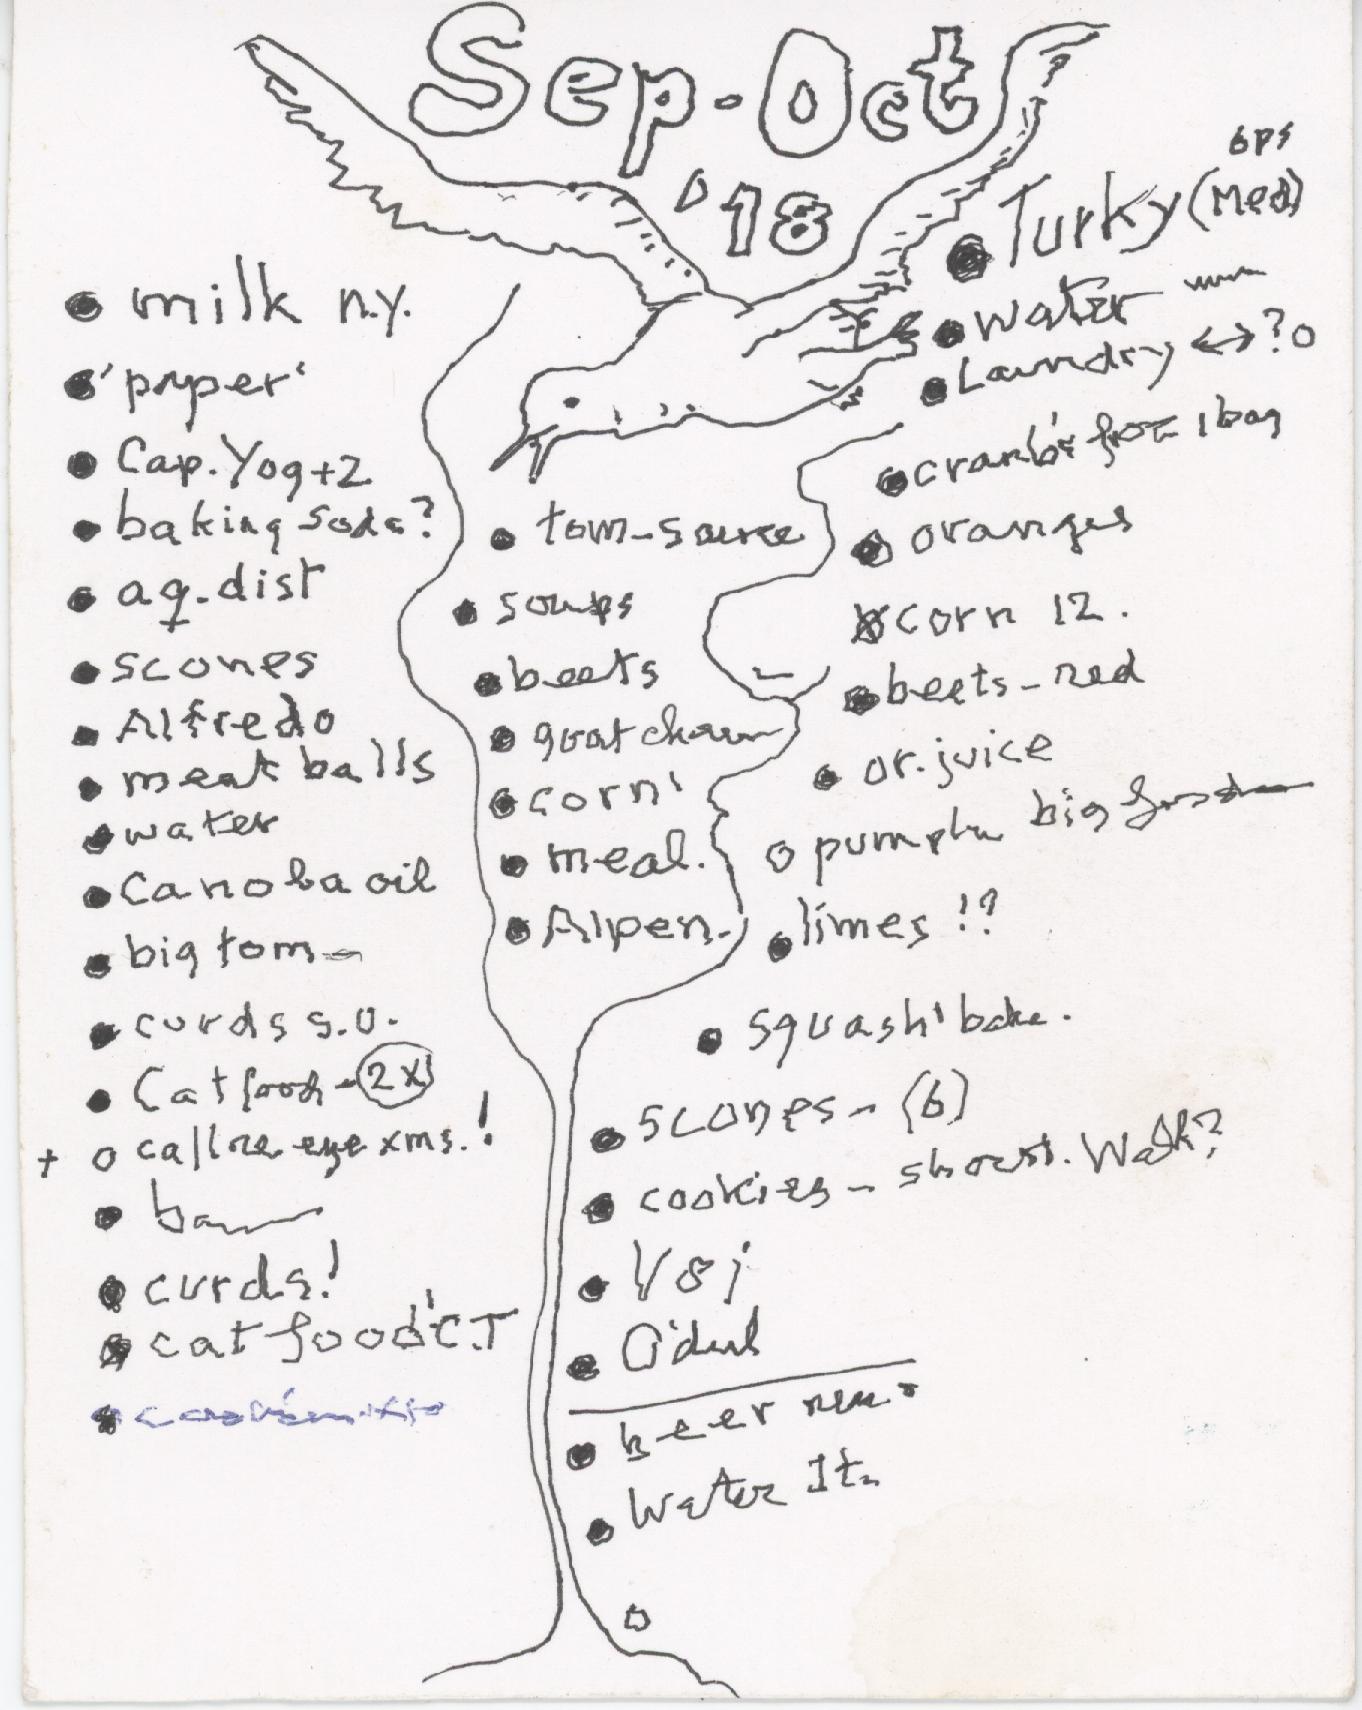 Sep-Oct
'18
• milk n.y.
• 'pmper'
• Cap. Yog+2
• baking soda?
• aq. dist
• scones
• Alfredo
• meat balls
• water
• Canola oil
• big tom
• curds s.o.
• Cat food - 2x
+ o call re eye xms.!
•
• curds!
• cat food 'C.T
• tom-sauce
• soups
• beets
• goat
• corn'
• meal.
• Alpen.
6ps
• Turky (Med)
• water
• Laundry ↔ ? o
• cranb's 1 bag
• oranges
• corn 12.
• beets - red
• or. juice
o big
• limes !?
• squash' bake.
• scones - (6)
• cookies - short. Walk?
• V8 j
• O'dul
• beer
• Water It.
o